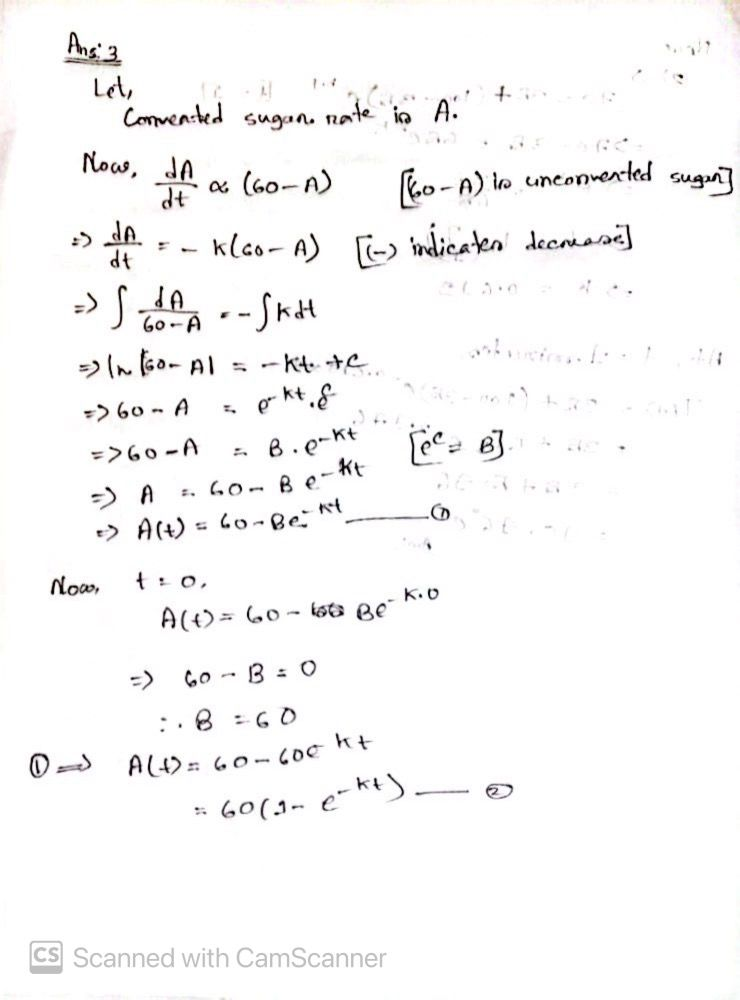 Ans: 3
Let,
Converted sugar rate is A.
Now, dA/dt ∝ (60-A) [(60-A) is unconverted sugar]
=> dA/dt = - K(60-A) [(-) indicates decrease]
=> ∫ dA/60-A = -∫kdt
=> ln |60-A| = -kt +c
=> 60-A = e^-kt.
=> 60-A = B.e^-Kt [e^c = B]
=> A = 60-Be^-Kt
=> A(t) = 60-Be^-Kt ①
Now, t=0,
A(t) = 60- Be^-K.0
=> 60-B=0
∴ B = 60
① => A(t) = 60-60e^kt
= 60(1-e^-kt) ②
CS Scanned with CamScanner